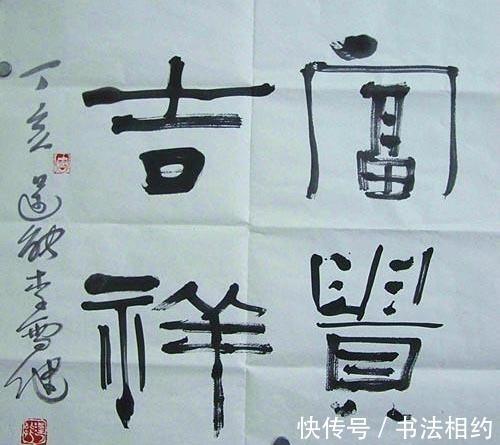 富貴
吉祥
丁亥
李雪健
快传号 / 书法相约